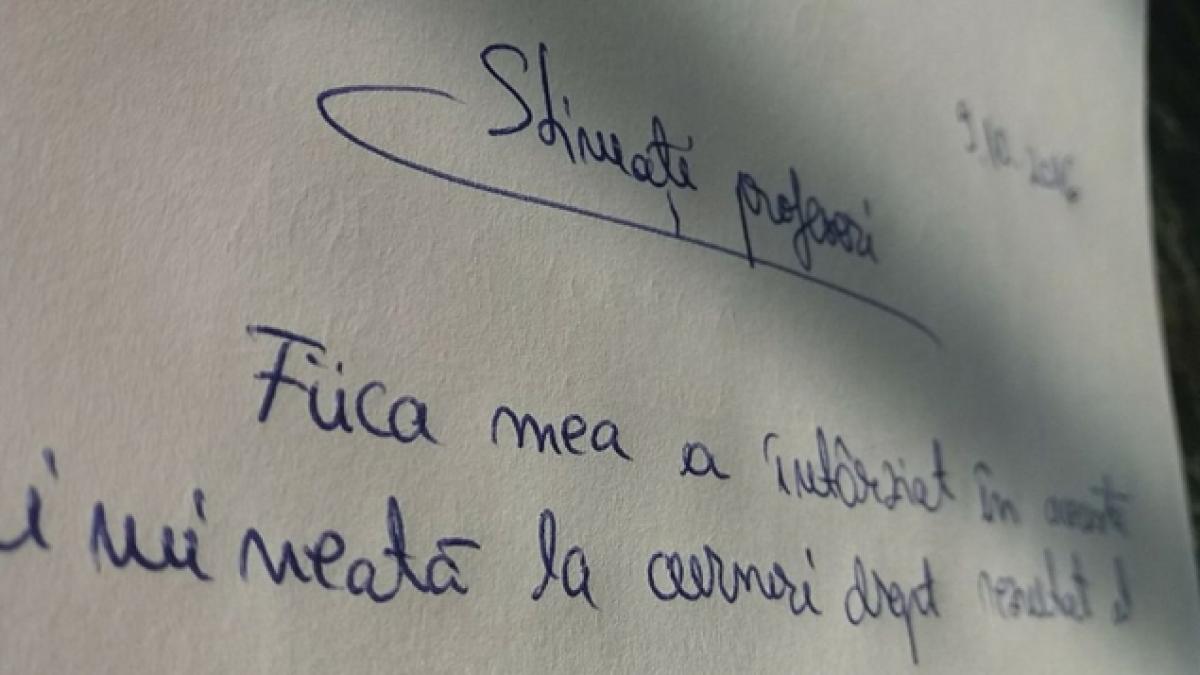 9.10.2016
Stimați profesori
Fiica mea a întârziat în această
i mineață la cursuri drept rezultat